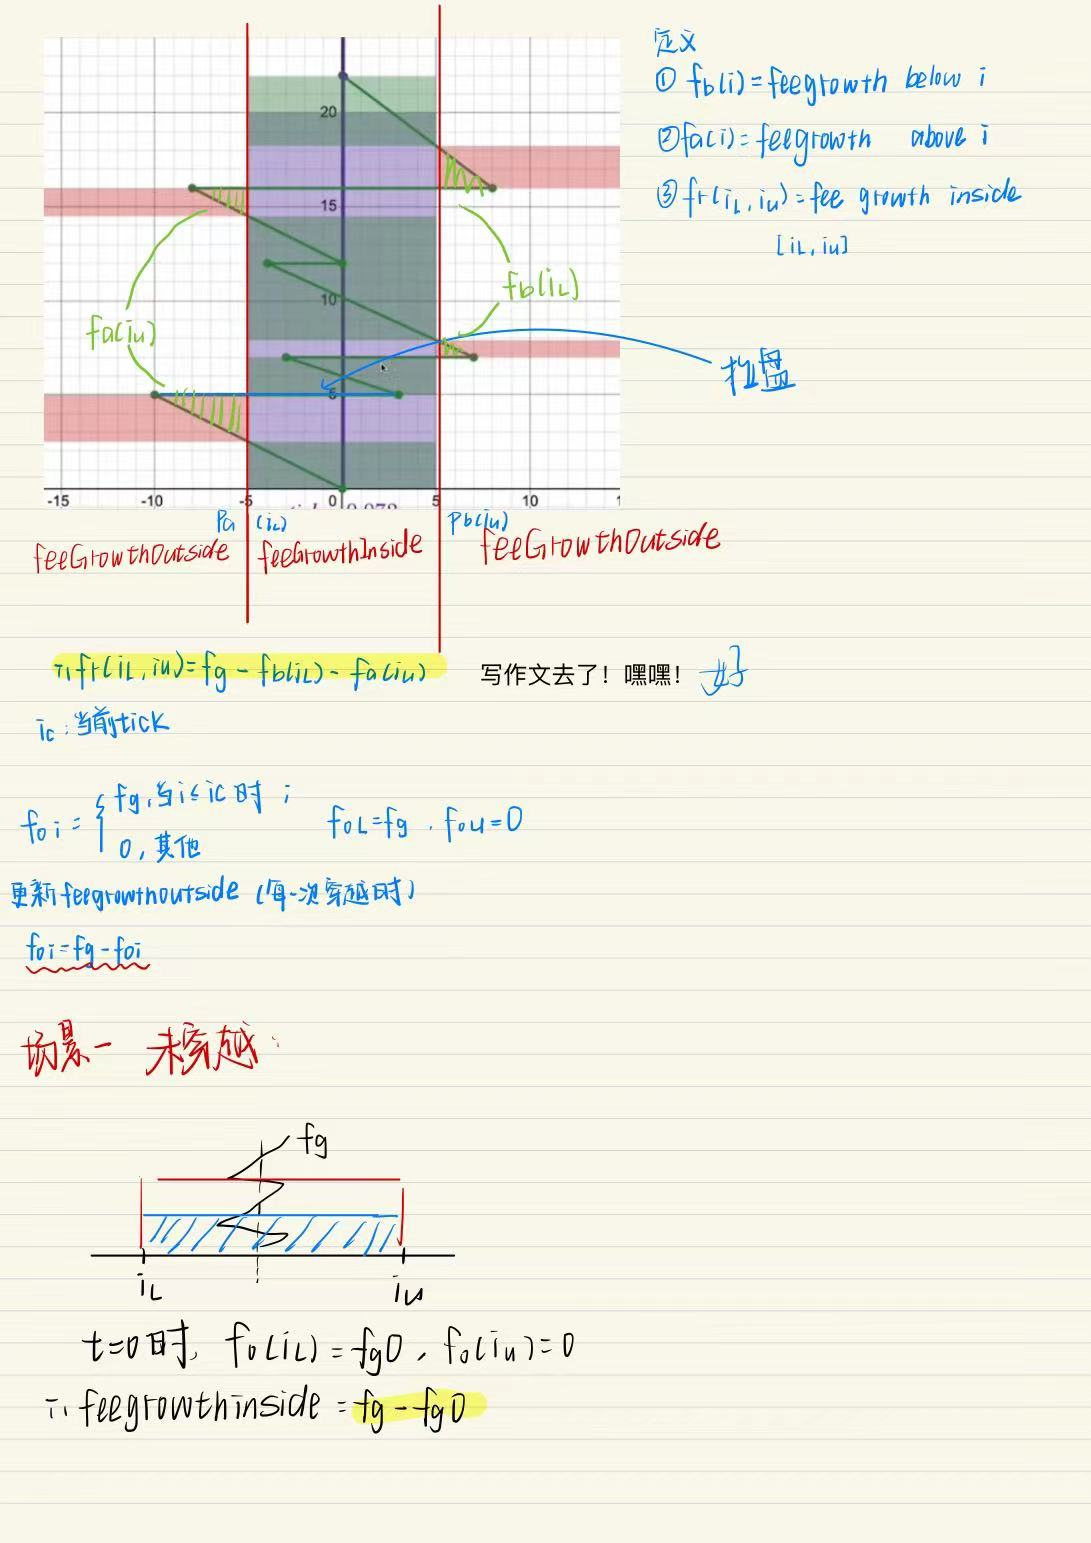 定义
① fb(i)=feegrowth below i
②fa(i)=feegrowth above i
③fr(iL,iu)=fee growth inside
[iL,iu]
20
15
10
5
fb(iL)
fa(iu)
-15 -10 -5 0 5 10 1
Pa (iL) Pb(iu)
feeGrowthOutside feeGrowthInside feeGrowthOutside
∴fr(iL,iu)=fg-fb(iL)-fa(iu) 写作文去了！嘿嘿！ 好
ic:当前tick
foi={fg,当i≤ic时;
0,其他
foL=fg,fou=0
更新feegrowthoutside(每一次穿越时)
foi=fg-foi
场景一 未穿越:
fg
iL iu
t=0时, fo(iL)=fg0, fo(iu)=0
∴feegrowthinside=fg-fg0